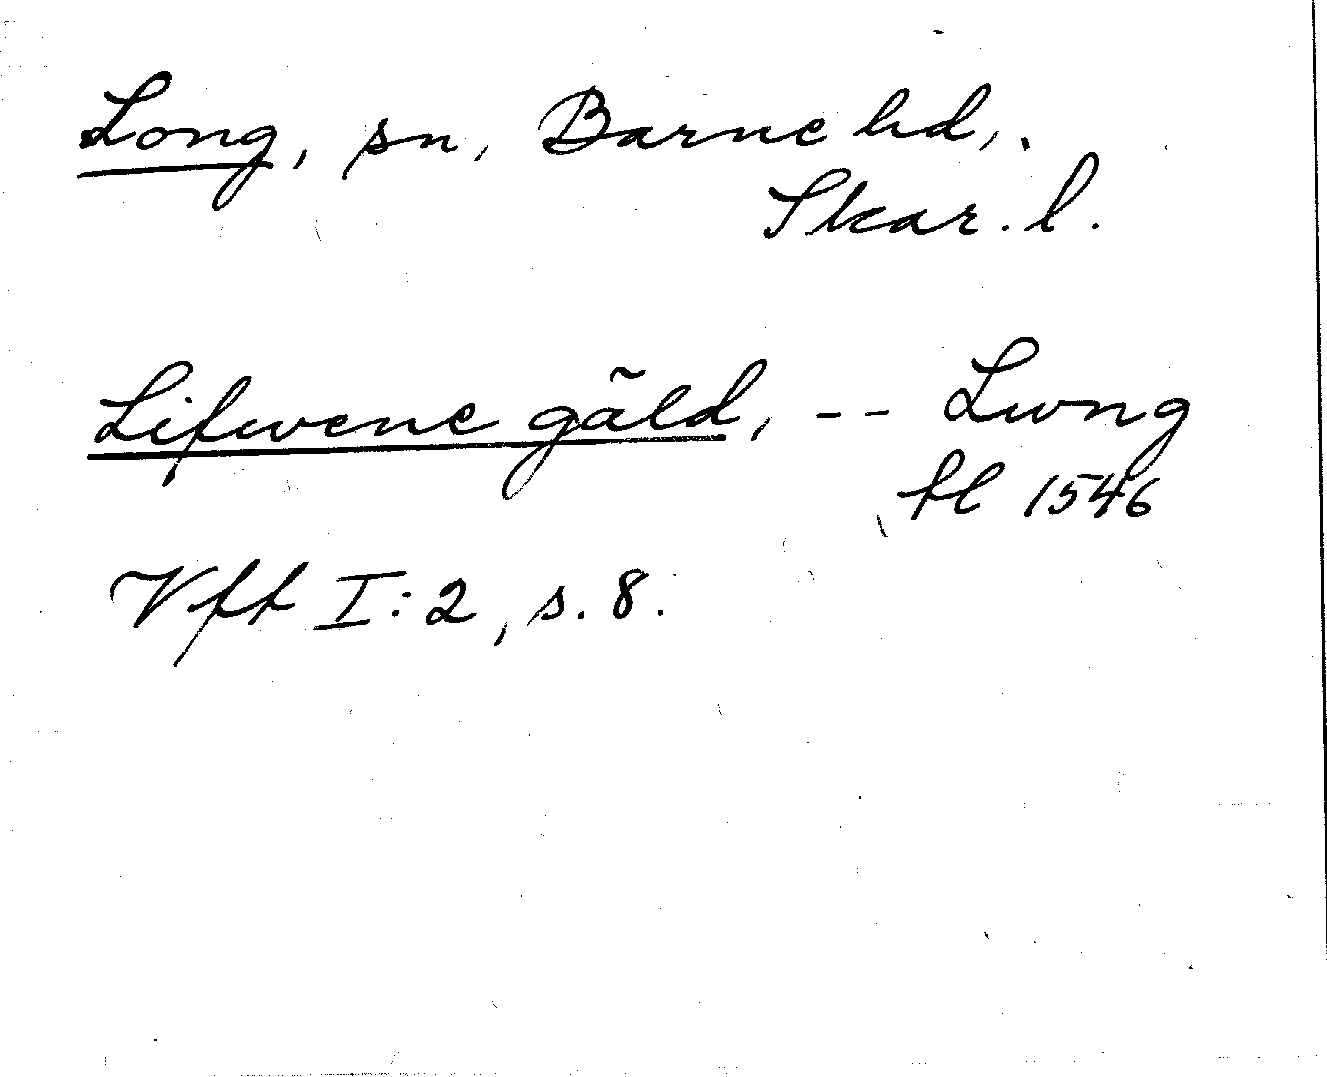 Long, sn, Barne hd,.
Skar. l.
Lifwene gäld, -- Lwng
fl 1546
Vff I:2, s. 8.